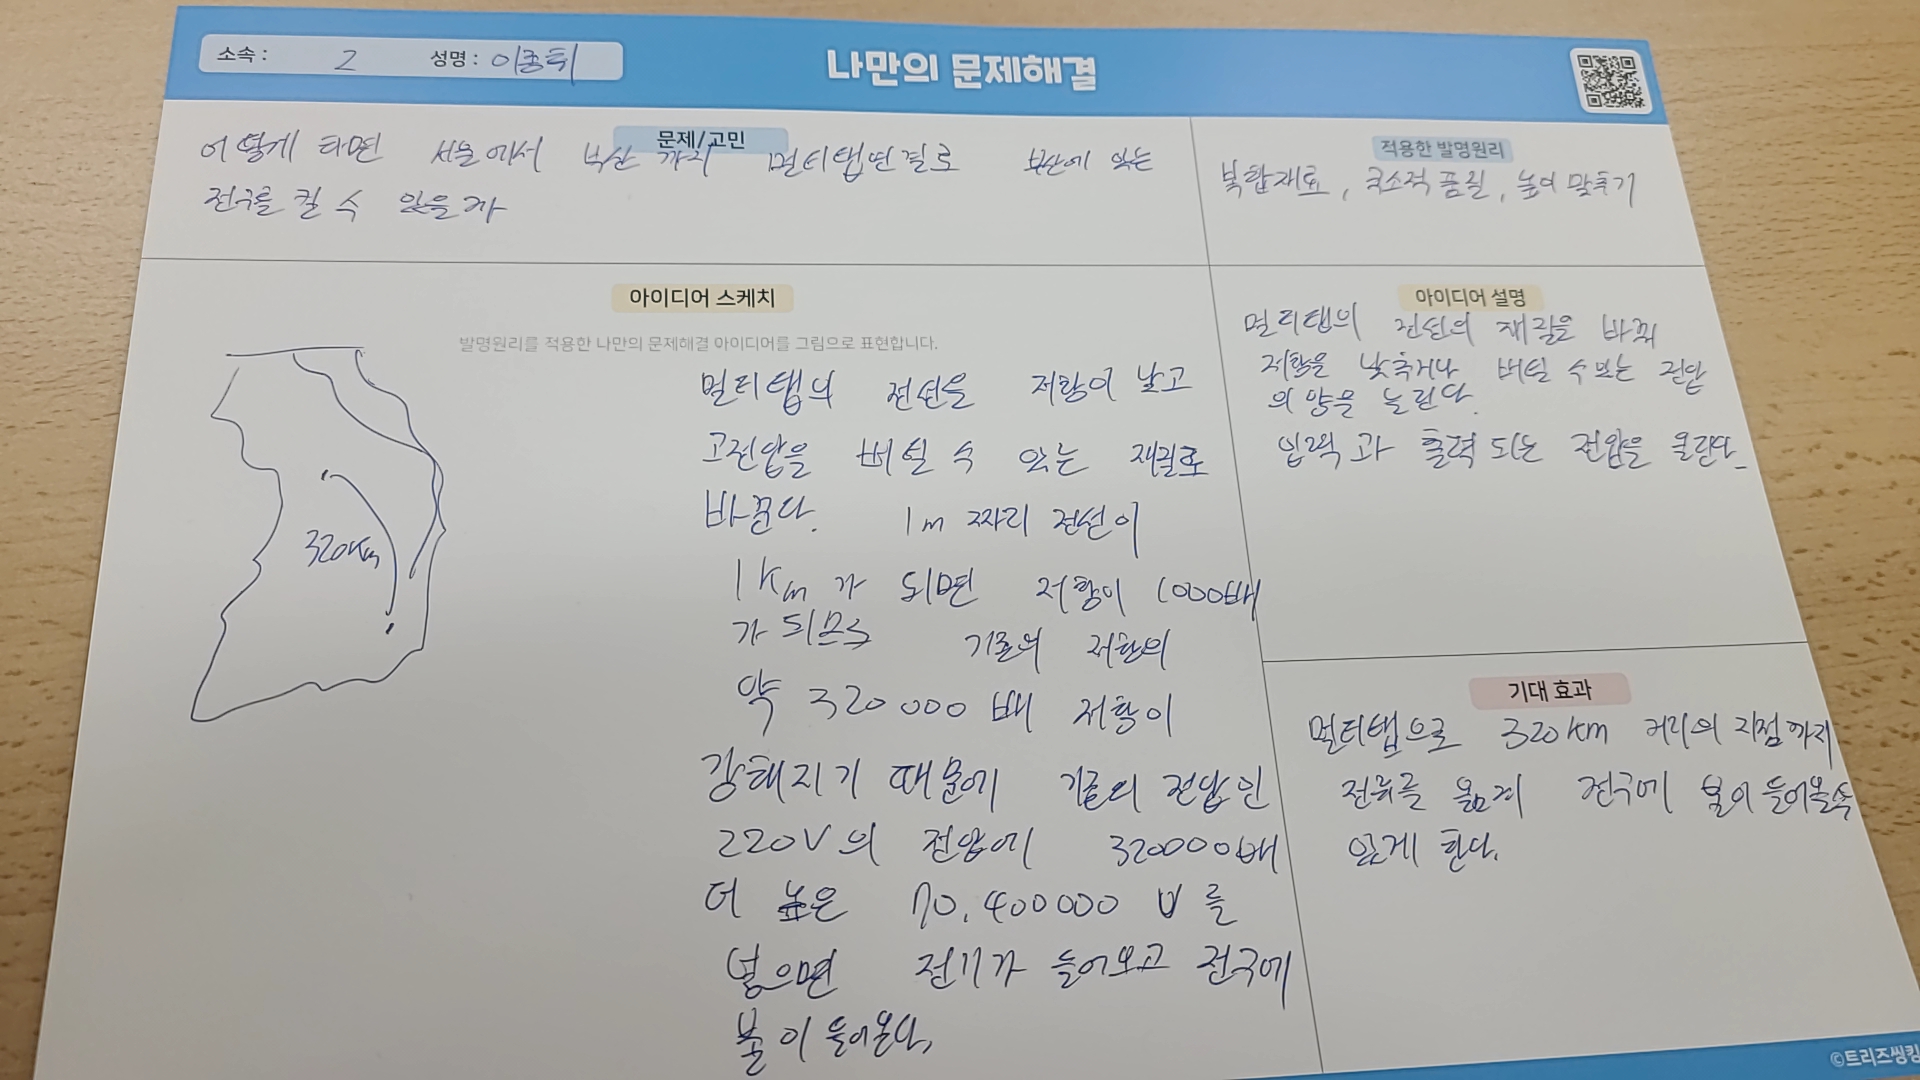 소속 : 2 성명 : 이종휘
나만의 문제해결
문제/고민
어떻게 하면 서울에서 부산 까지 멀티탭연결로 부산에 있는
전구를 킬 수 있을까
적용한 발명원리
복합재료, 국소적 품질, 높이 맞추기
아이디어 스케치
발명원리를 적용한 나만의 문제해결 아이디어를 그림으로 표현합니다.
320km
멀티탭의 전선을 저항이 낮고
고전압을 버틸 수 있는 재질로
바꾼다. 1m 짜리 전선이
1km가 되면 저항이 1000배
가 되므로 기존의 저항의
약 320000배 저항이
강해지기 때문에 기존의 전압인
220V의 전압에 320000배
더 높은 70,400000 V를
넣으면 전기가 들어오고 전구에
불이 들어온다,
아이디어 설명
멀티탭의 전선의 재질을 바꿔
저항을 낮추거나 버틸 수 있는 전압
의 양을 늘린다.
입력과 출력 되는 전압을 올린다.
기대 효과
멀티탭으로 320km 거리의 지점까지
전류를 옮겨 전구에 불이 들어올 수
있게 한다.
©트리즈씽킹